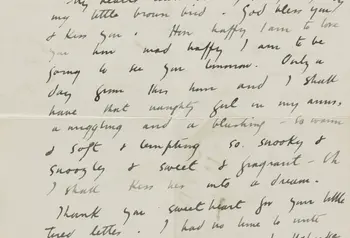 my little brown bird. God bless you
& kiss you. How happy I am to love
you how mad happy I am to be
going to see you tomorrow. Only a
day from this hour and I shall
have that naughty girl in my arms,
a niggling and a blushing - so warm
& soft & tempting so snooky &
snoogley & sweet & fragrant - Oh
I shall kiss her into a dream.
Thank you sweetheart for your little
tired letter. I had no time to write